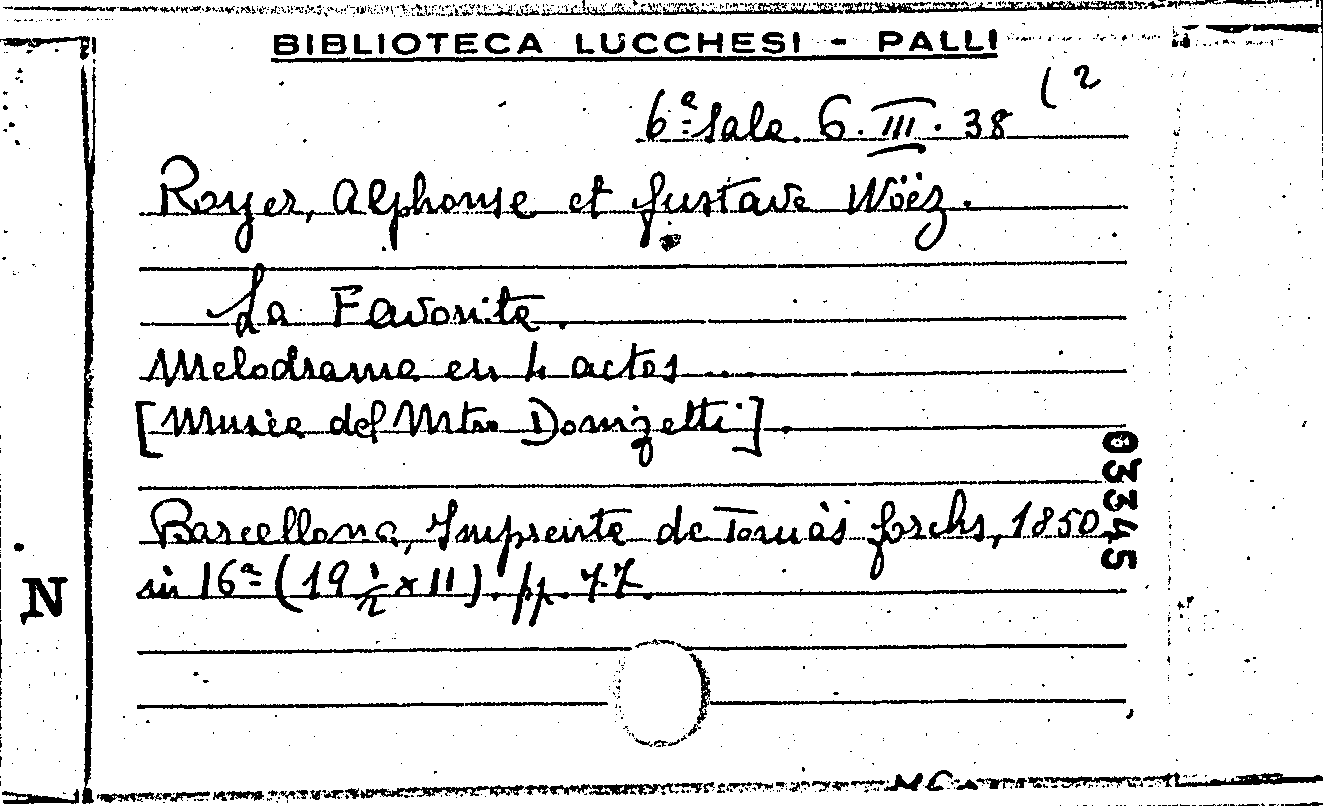 BIBLIOTECA LUCCHESI - PALLI
6ª Sala 6. III. 38 (2
Royer, Alphonse et Gustave Wöëz.
La Favorite.
Melodrama en 4 actos
[Musica del Mtro Donizetti].
Barcellona, Imprenta de Tomàs Gorchs, 1850
in 16ª (19 ½ x 11). pp. 77.
03345
N